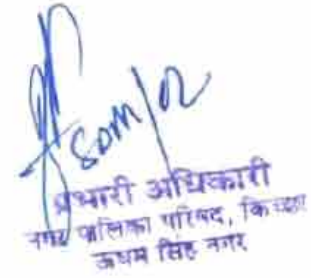 SDM/
प्रभारी अधिकारी
नगर पालिका परिषद, किच्छा
ऊधम सिंह नगर